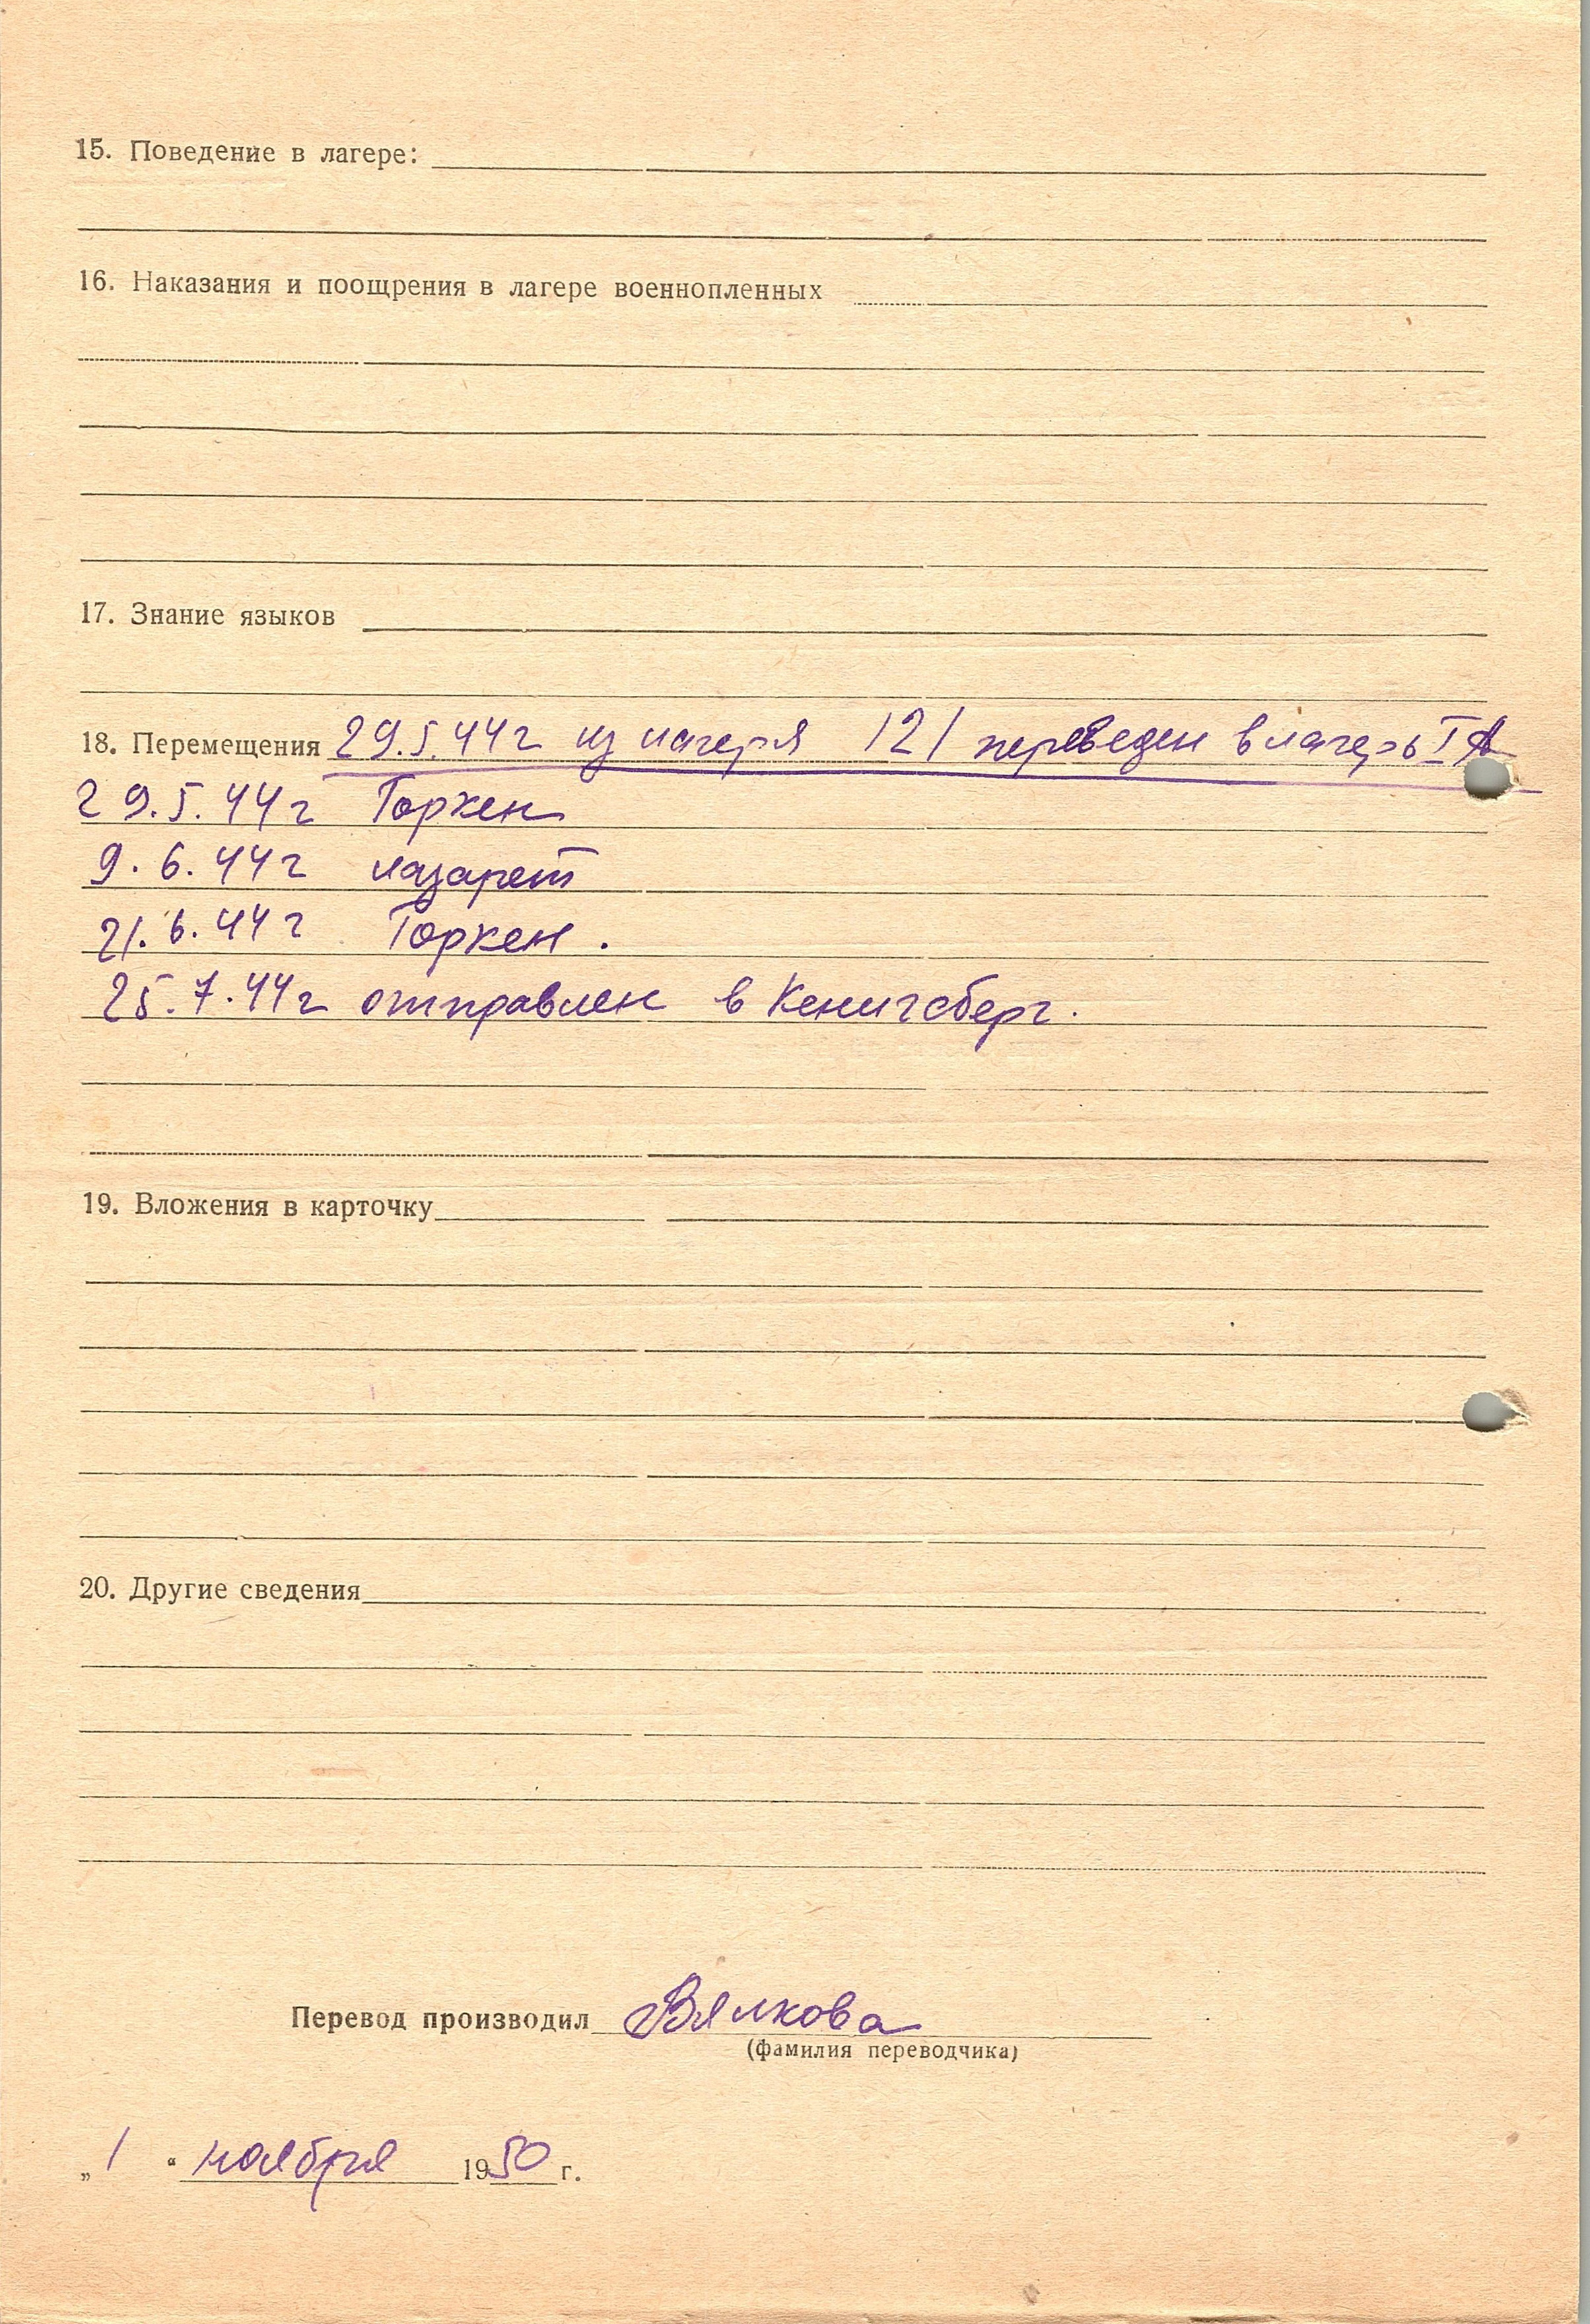 15. Поведение в лагере:
16. Наказания и поощрения в лагере военнопленных
17. Знание языков
18. Перемещения 29.5.44г из лагеря 121 переведен в лагерь IA
29.5.44г Горкен
9.6.44г лазарет
21.6.44г Горкен.
25.7.44г отправлен в Кенигсберг.
19. Вложения в карточку
20. Другие сведения
Перевод производил Вялкова
(фамилия переводчика)
„1“ ноября 1950 г.